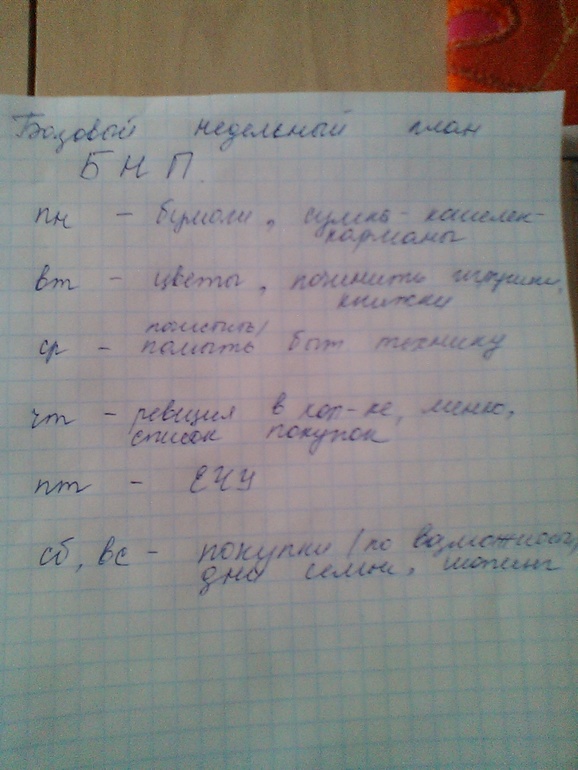 Базовый недельный план
БНП
пн - бумаги, сумка-кошелек-
карманы
вт - цветы, починить игрушки,
книжки
почистить/
ср - помыть быт технику
чт - ревизия в хол-ке, меню,
список покупок
пт - ЕЧУ
сб, вс - покупки (по возможности),
дела семьи, шопинг